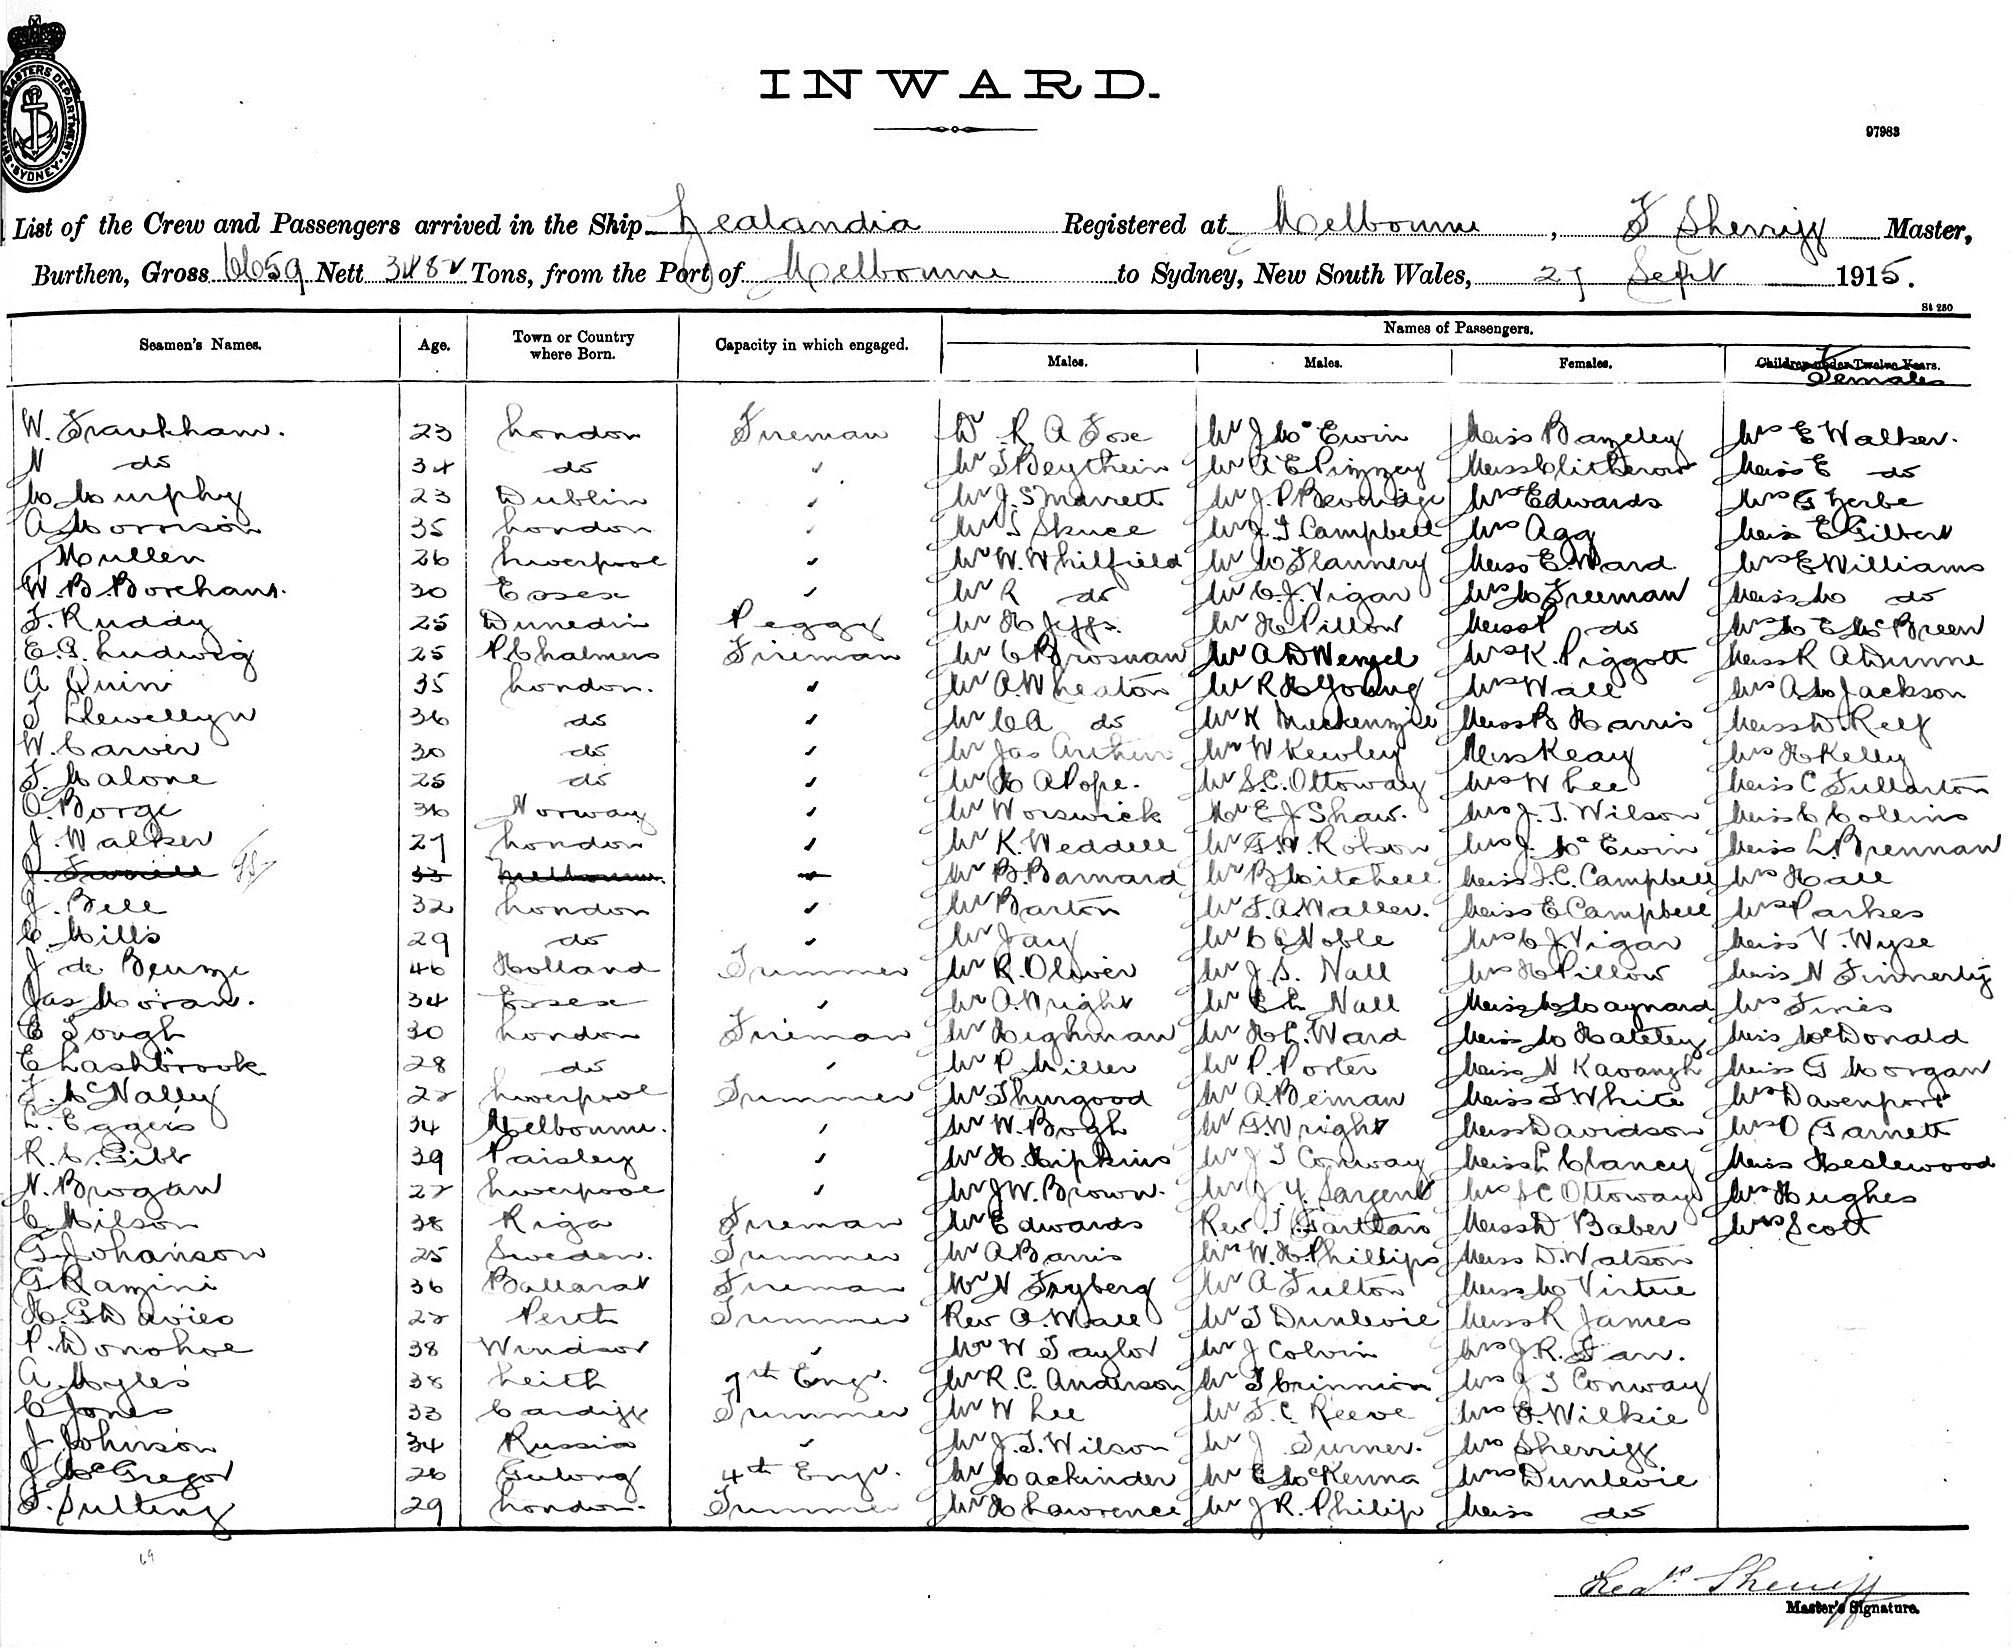 INWARD.
97983
SHIPPING MASTERS DEPARTMENT · SYDNEY ·
List of the Crew and Passengers arrived in the Ship Zealandia Registered at Melbourne, F Sherriff Master,
Burthen, Gross 6659 Nett 3482 Tons, from the Port of Melbourne to Sydney, New South Wales, 27 Sept 1915.
St 250
Seamen's Names. Age. Town or Country where Born. Capacity in which engaged. Names of Passengers.
Males. Males. Females. Children under Twelve Years. Females
W. Frankham. 23 London Fireman Dr R A Fox Mr J Mc Ewin Miss Bazeley Mrs E Walker.
N do 34 do " Mr T Beythein Mr A E Pinney Miss Clitherow Miss E do
M Murphy 23 Dublin " Mr J. S Marrett Mr J. P Beveridge Mrs Edwards Mrs G Zerbe
A Morrison 35 London " Mr S Skuce Mr J. T Campbell Mrs Agg Miss E Gilbert
J Mullen 26 Liverpool " Mr W. Whilfield Mr M Flannery Miss E. Ward Mrs E Williams
W. B Boreham. 30 Essex " Mr R do Mr C. J. Vigar Mrs M Freeman Miss M do
F. Ruddy 25 Dunedin Peggy Mr H Jeffs. Mr H Pillow Miss P do Mrs M E Mc Breen
E. G. Ludwig 25 P. Chalmers Fireman Mr C Brosnan Mr A D Wenzel Mrs K. Piggott Miss R A Dunne
A Quin 35 London. " Mr A. Wheaton Mr R H Young Mrs Wall Mrs A M Jackson
T Llewellyn 36 do " Mr C A do Mr K Mackenzie Miss B Harris Miss D. Relf
W. Carver 30 do " Mr Jas Arthur Mr W Kewley Miss Keay Mrs H Kelly
F. Malone 25 do " Mr H A Pope. Mr S. C. Ottoway Mrs W Lee Miss C Fullarton
O. Borge 36 Norway " Mr Worswick Mr E J Shaw. Mrs J. T. Wilson Miss C Collins
J. Walker 27 London " Mr K. Weddell Mr G. W. Robson Mrs J. Mc Ewin Miss L. Brennan
33 Melbourne. " Mr B. Barnard Mr B Mitchell Miss I. C. Campbell Mrs Hall
J. Bell 32 London " Mr Barton Mr F. A. Waller. Miss E Campbell Mrs Parkes
C. Mills 29 do " Mr Jay Mr C C Noble Mrs C J. Vigar Miss V. Wyse
J de Beunze 46 Holland Trimmer Mr R. Oliver Mr J. S. Nall Mrs H Pillow Miss N Finnerty
Jas Moran. 34 Essex " Mr A. Wright Mr E L Nall Miss M Maynard Mrs Fines
E Tough 30 London Fireman Mr Highman Mr H C. Ward Miss M Hateley Miss McDonald
E Lashbrook 28 do " Mr P Miller Mr P. Porter Miss N Kavangh Miss G Morgan
F. McNalley 22 Liverpool Trimmer Mr Thurgood Mr A. Beman Miss F White Mrs Davenport
L. Eggers 34 Melbourne. " Mr W. Bogh Mr G. Wright Miss Davidson Mrs O Garnett
R. C. Gibb 39 Paisley " Mr H. Hipkins Mr J T Conway Miss L Clancy Miss Heslewood
N. Brogan 22 Liverpool " Mr J W. Brown. Mr J. Y. Sargent Mrs S C Ottoway Mrs Hughes
C. Milson 38 Riga Fireman Mr Edwards Rev. T. Gartlan Miss D Baber Mrs Scott
G. Johanson 25 Sweden. Trimmer Mr A Barris Mrs W. H. Phillips Miss D. Watson
G Ramini 36 Ballarat Fireman Mr N Fryberg Mr A Fulton Miss M Virtue
H. G Davies 22 Perth Trimmer Rev A. Wall Mr T Dunlevie Miss R James
P. Donohoe 38 Windsor " Mr W Taylor Mr J Colvin Mrs J. R. Faw.
A. Myles 38 Leith 7th Engr. Mr R. C. Anderson Mr T Crinnion Mrs J T Conway
C Jones 33 Cardiff Trimmer Mr W Lee Mr F. C. Reeve Mrs E. Wilkie
J Johnson 34 Russia " Mr J. T. Wilson Mr J Turner. Mrs Sherriff
J McGregor 26 Gulong 4th Engr. Mr Mackinder Mr E McKenna Mrs Dunlevie
F. Sulling 29 London. Trimmer Mr H Lawrence Mr J R. Philip Miss do
69
Fredk Sherriff
Master's Signature.